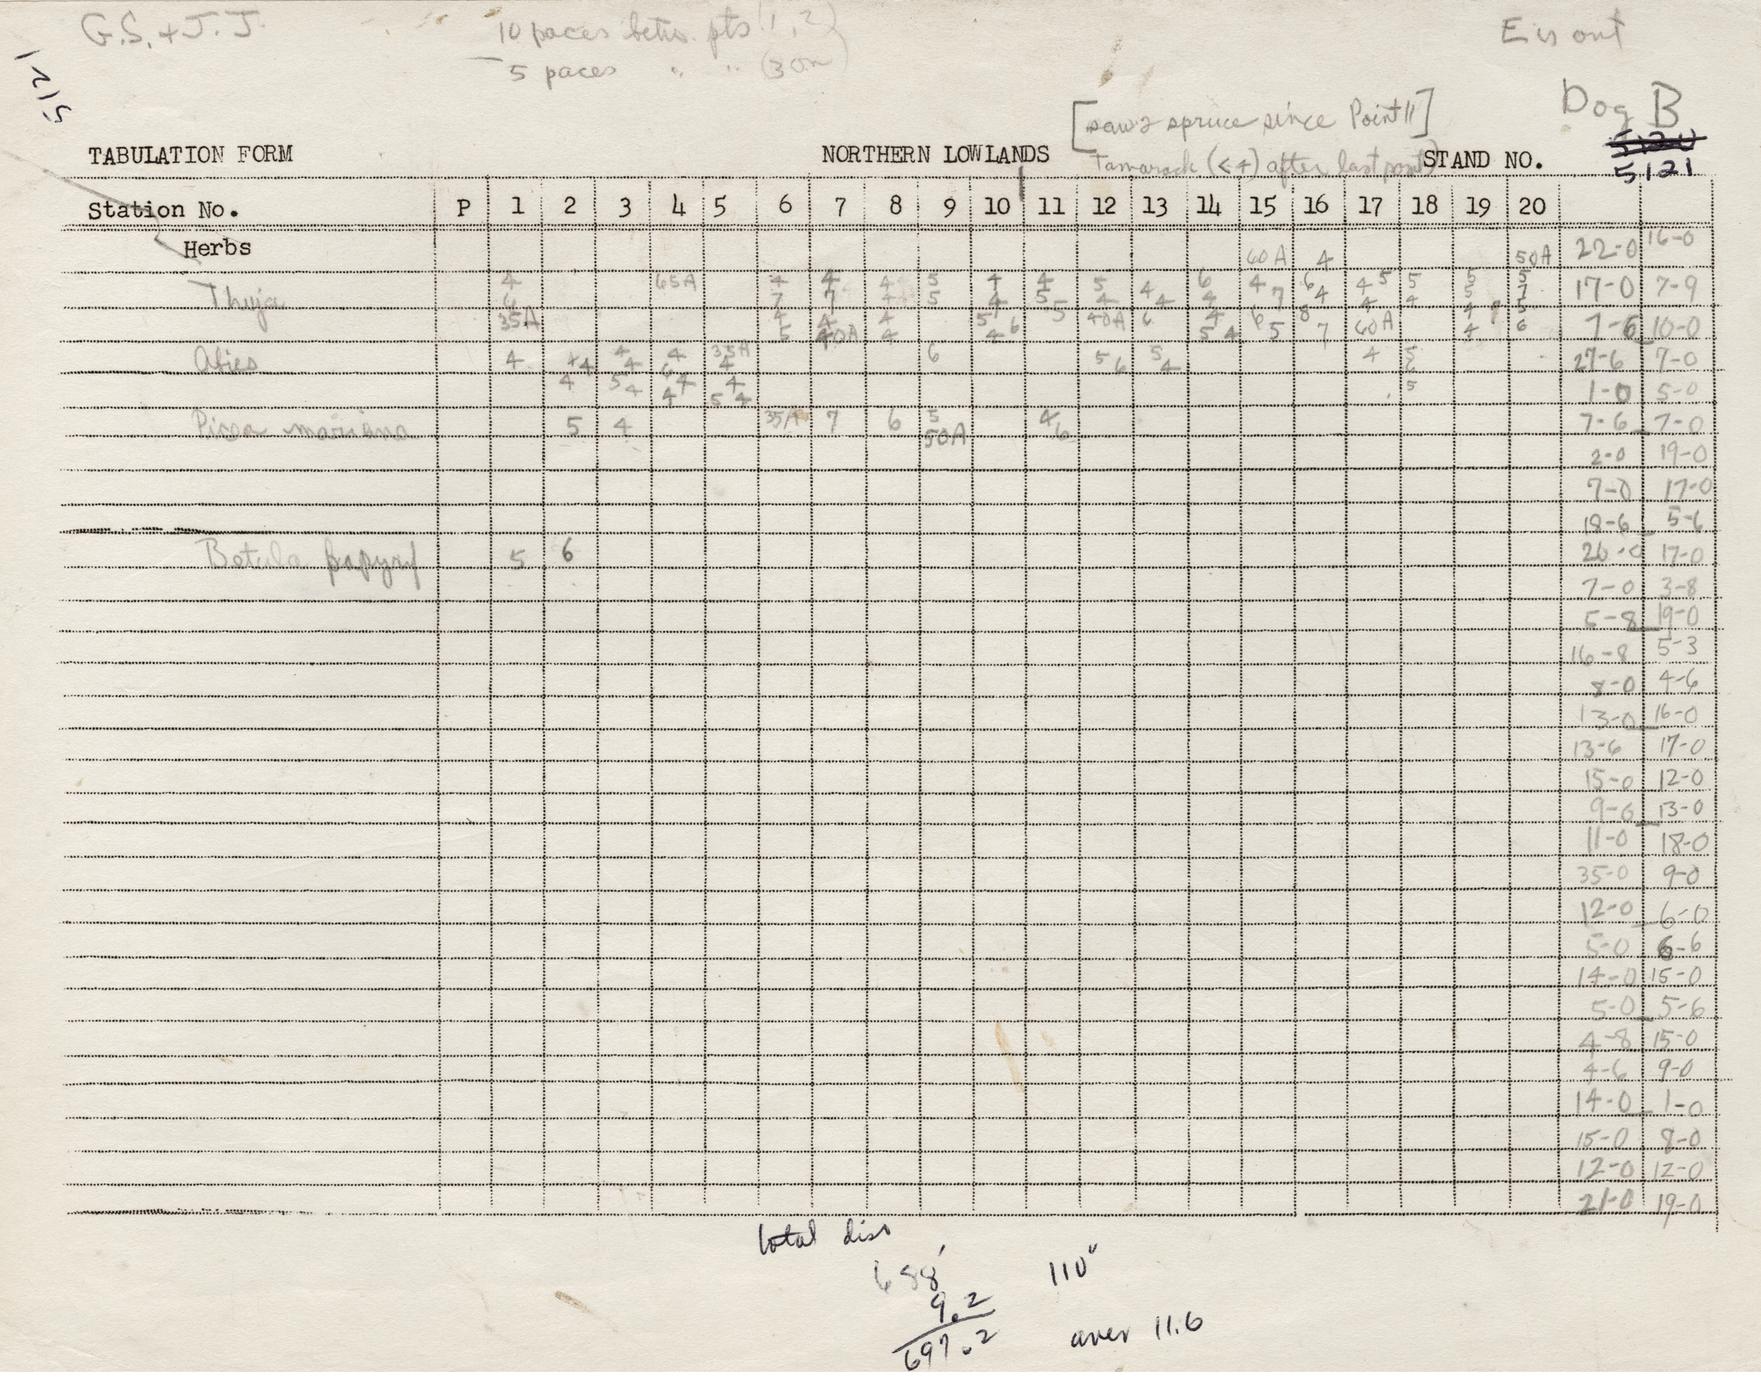 G.S. + J.J.
10 paces betw. pts (1, 2)
5 paces " " (3 on)
E is out
5121
Dog B
[saw 2 spruce since Point 11]
TABULATION FORM NORTHERN LOWLANDS Tamarack (<4) after last point) STAND NO. 5121
Station No. P 1 2 3 4 5 6 7 8 9 10 11 12 13 14 15 16 17 18 19 20
Herbs 60A 4 50A 22-0 16-0
Thuja 4 65A 4 4 4 5 4 4 5 4 6 4 6 4 5 5 5 5 17-0 7-9
6 7 7 4 5 4 5 5 4 4 4 7 4 4 4 5 7
35A 4 4 4 5 6 40A 6 4 6 8 60A 4 9 5 7-6 10-0
5 40A 4 4 5 4 5 7 4 6
Abies 4 4 4 4 4 35A 6 5 6 5 4 4 5 27-6 7-0
4 5 4 4 4 4 5 4 5 1-0 5-0
Picea mariana 5 4 35A 7 6 5 4 6 7-6 7-0
50A
2-0 19-0
7-0 17-0
18-6 5-6
Betula papyrf 5 6 26-0 17-0
7-0 3-8
5-8 19-0
16-8 5-3
8-0 4-6
13-0 16-0
13-6 17-0
15-0 12-0
9-6 13-0
11-0 18-0
35-0 9-0
12-0 6-0
5-0 6-6
14-0 15-0
5-0 5-6
4-8 15-0
4-6 9-0
14-0 1-0
15-0 8-0
12-0 12-0
21-0 19-0
total dist
688' 110"
9.2
697.2 aver 11.6